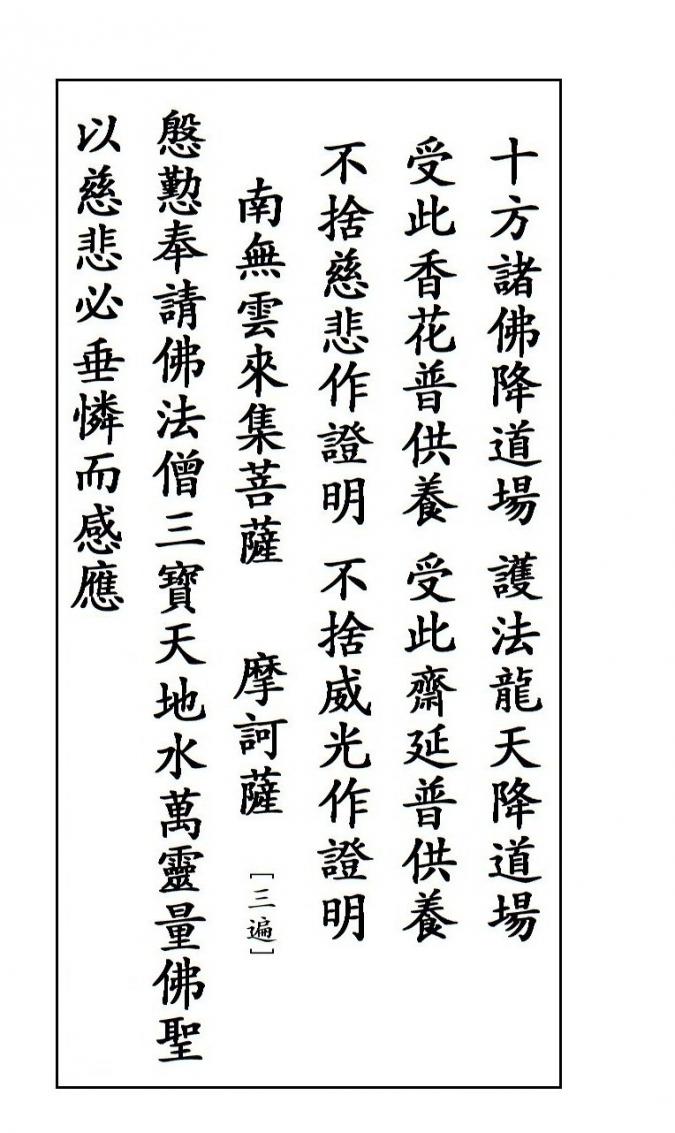 十方諸佛降道場 護法龍天降道場
受此香花普供養 受此齋延普供養
不捨慈悲作證明 不捨威光作證明
南無雲來集菩薩 摩訶薩 [三遍]
慇懃奉請佛法僧三寶天地水萬靈量佛聖
以慈悲必垂憐而感應